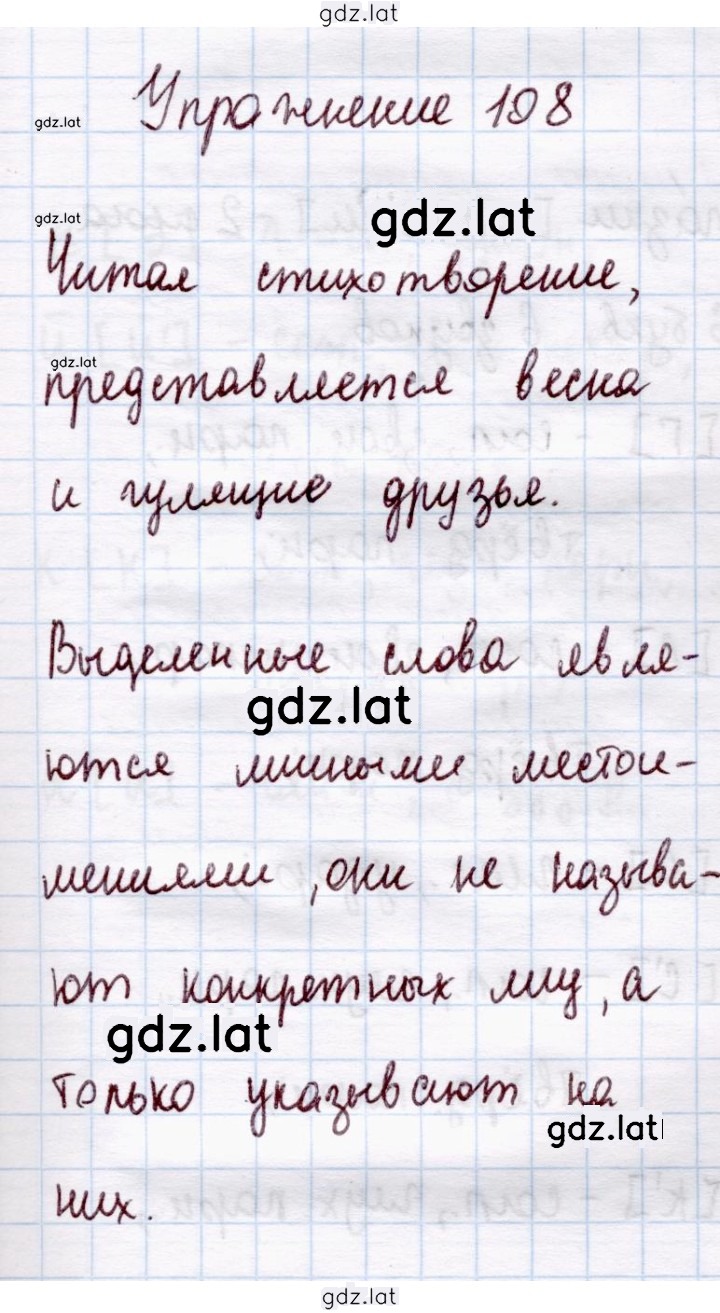 gdz.lat
Упражнение 108
gdz.lat
gdz.lat
gdz.lat
Читая стихотворение,
gdz.lat
представляется весна
и гулящие друзья.
Выделенные слова явля-
gdz.lat
ются личными местои-
мениями, они не называ-
ют конкретных лиц, а
gdz.lat
только указывают на
gdz.lat
них.
gdz.lat